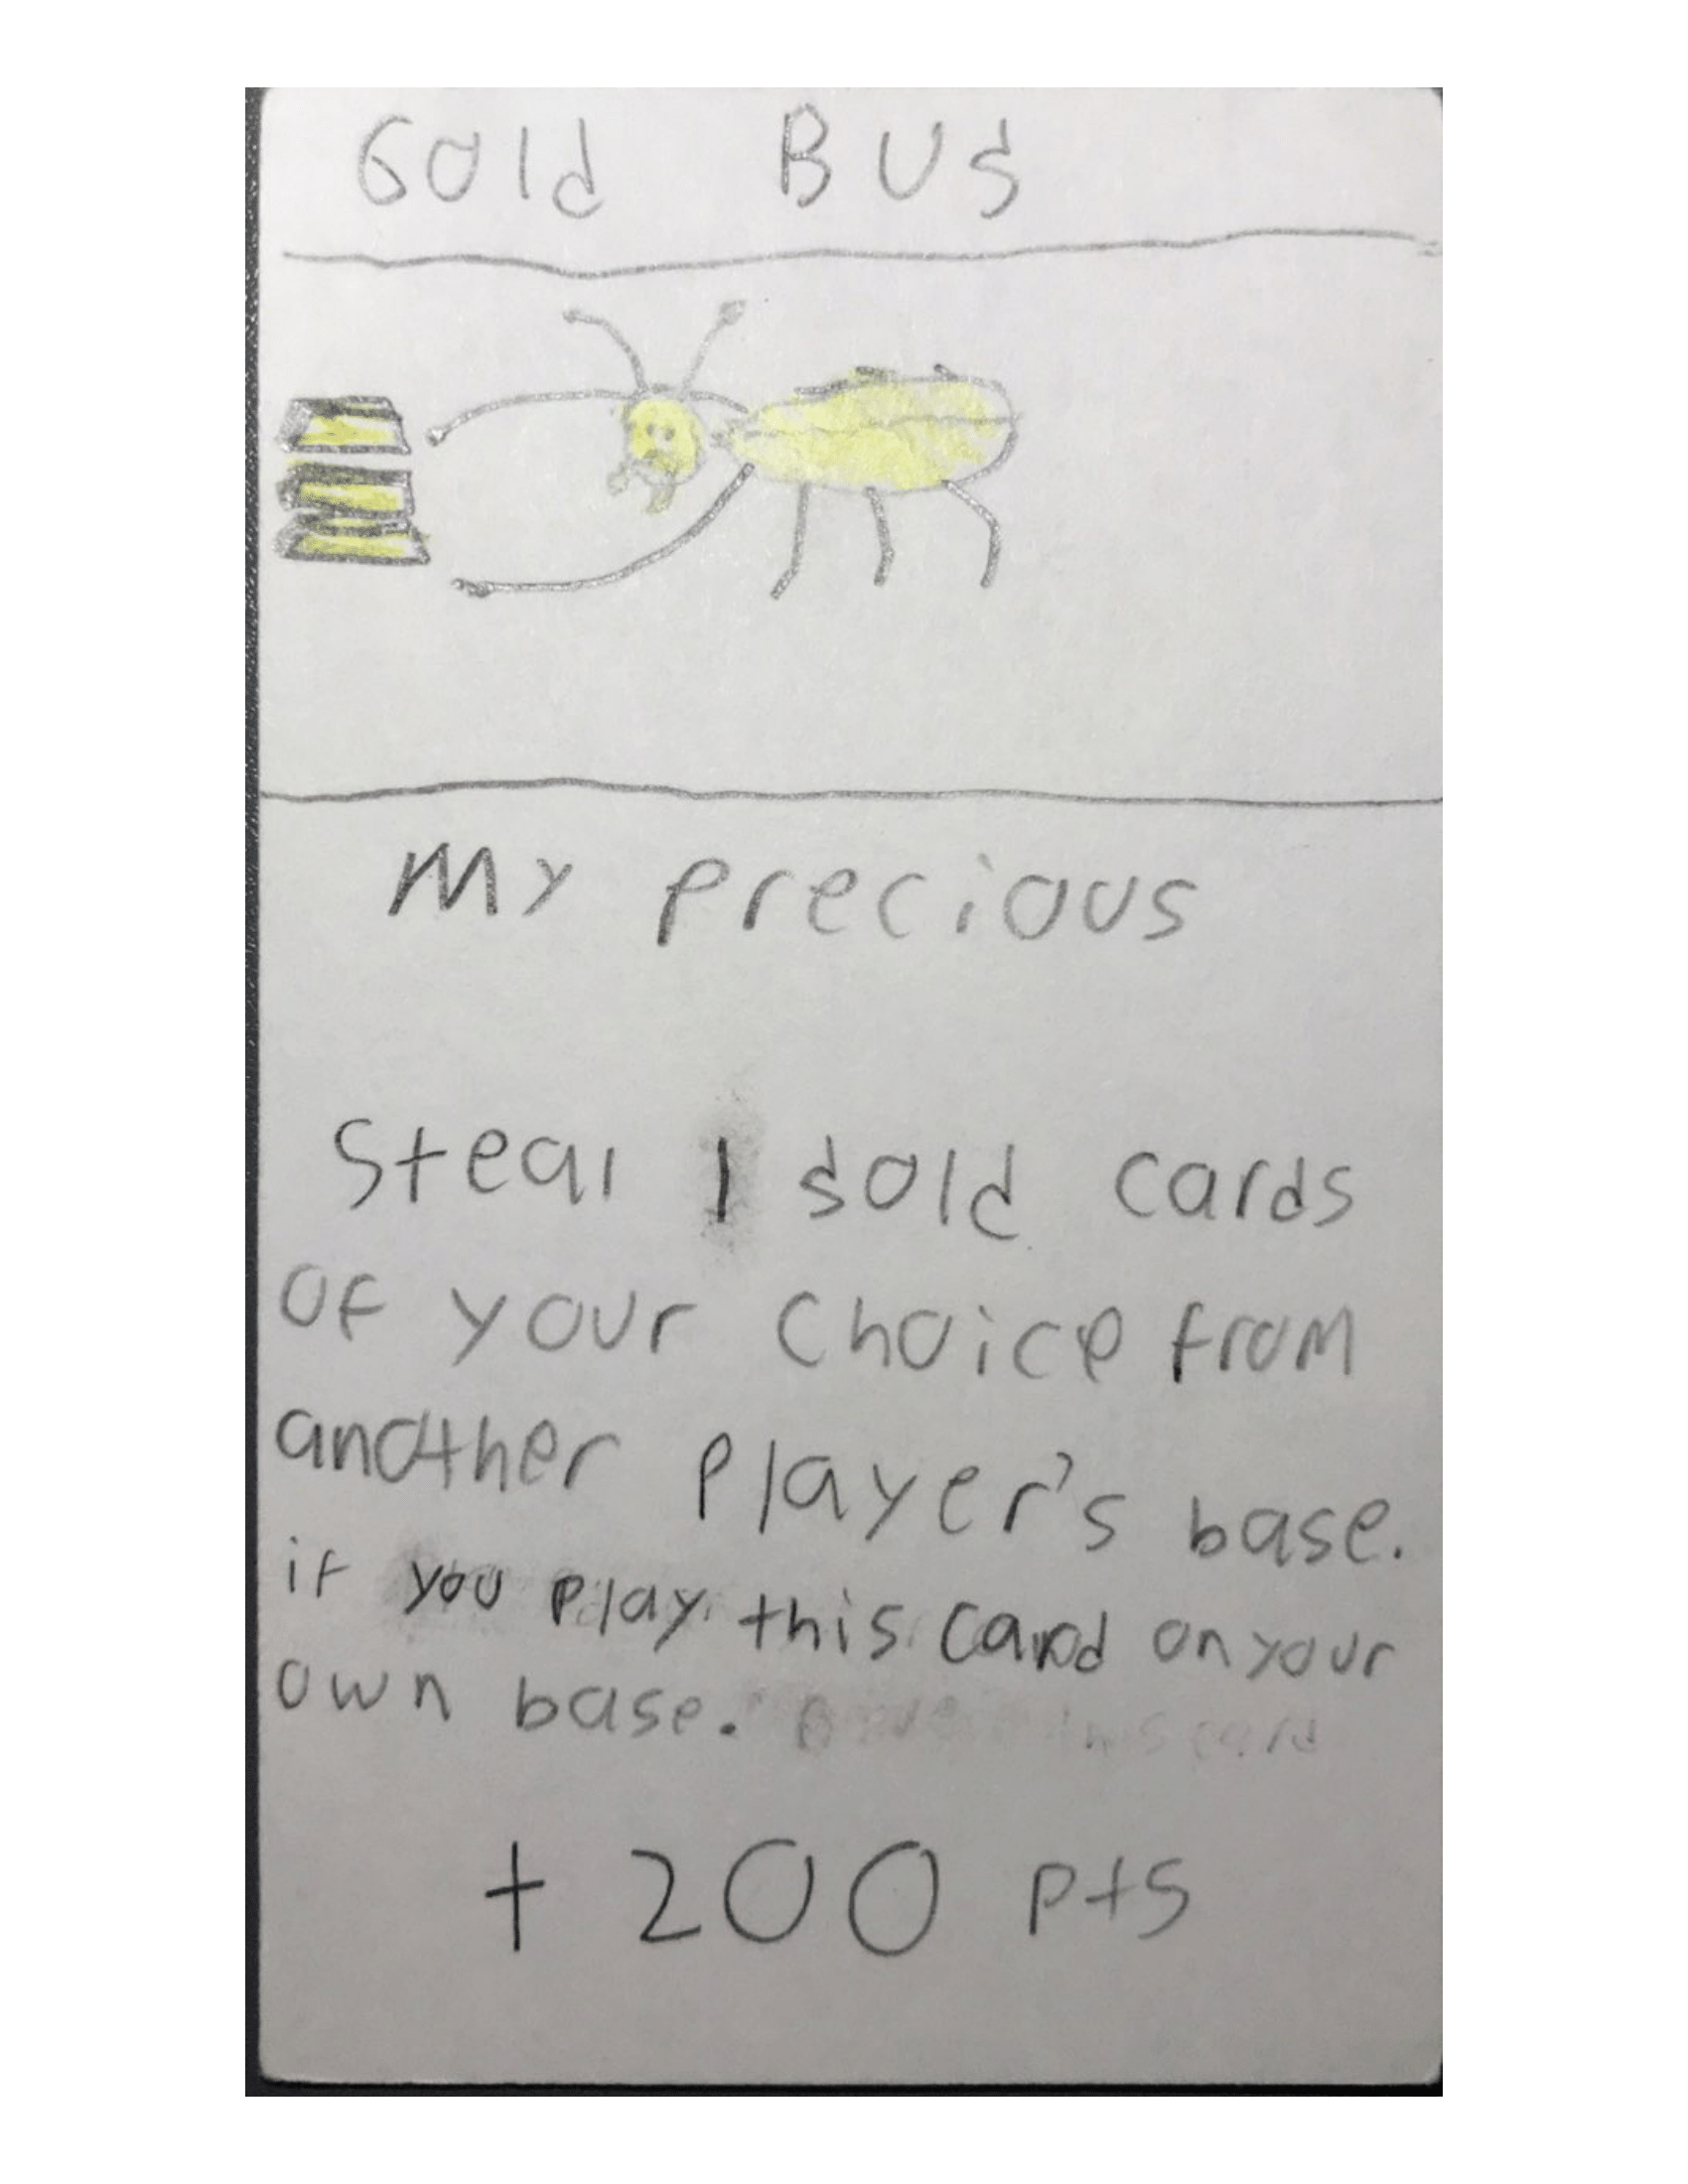 Gold Bug
My precious
Steal 1 gold cards
of your choice from
another player's base.
if you play this card on your
own base.
+ 200 pts